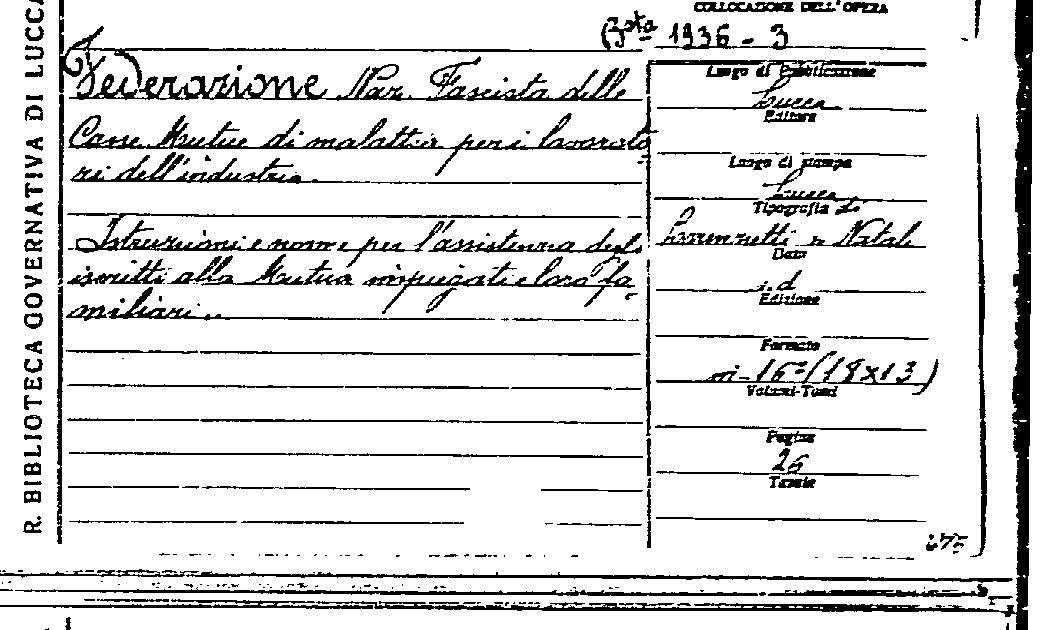 R. BIBLIOTECA GOVERNATIVA DI LUCCA
COLLOCAZIONE DELL'OPERA
Bta 1936 - 3
Federazione Naz. Fascista delle
Casse Mutue di malattia per i lavorato
ri dell'industria.
Istruzioni e norme per l'assistenza degli
iscritti alla Mutua impiegati e loro fa-
miliari..
Luogo di Pubblicazione
Lucca
Editore
Luogo di stampa
Lucca
Tipografia di
Lorenzetti e Natali
Data
s.d
Edizione
Formato
in-16°(18x13)
Volumi-Tomi
Pagine
26
Tavole